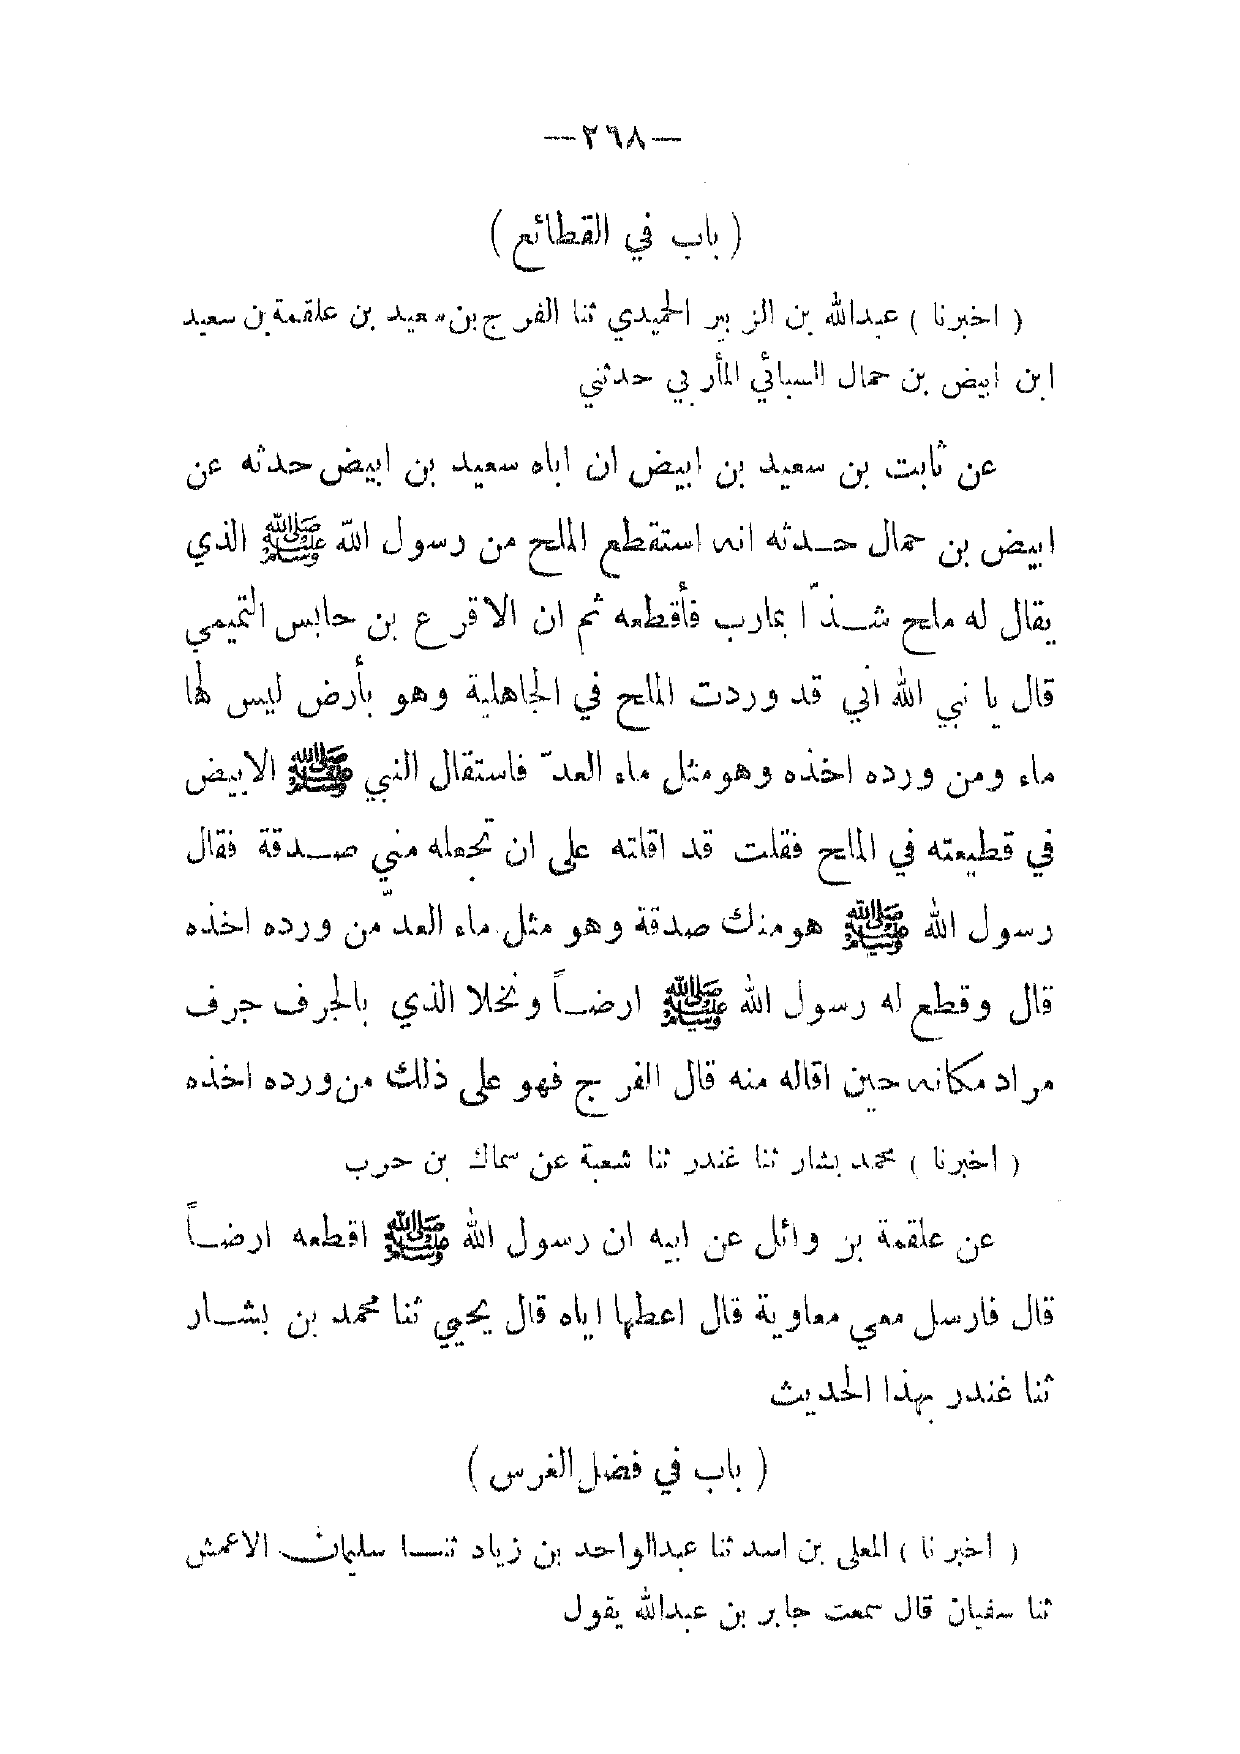 —٢٦٨—
( باب في القطائع )
( اخبرنا ) عبدالله بن الزبير الحميدي ثنا الفرج بن سعيد بن علقمة بن سعيد
ابن ابيض بن حمال السبائي المأربي حدثني
عن ثابت بن سعيد بن ابيض ان اباه سعيد بن ابيض حدثه عن
ابيض بن حمال حـدثه انه استقطع الملح من رسول الله ﷺ الذي
يقال له ملح شـذّا بمارب فأقطعه ثم ان الاقرع بن حابس التميمي
قال يا نبي الله اني قد وردت الملح في الجاهلية وهو بأرض ليس لها
ماء ومن ورده اخذه وهو مثل ماء العدّ فاستقال النبي ﷺ الابيض
في قطيعته في الملح فقلت قد اقلته على ان تجعله مني صـدقة فقال
رسول الله ﷺ هو منك صدقة وهو مثل ماء العدّ من ورده اخذه
قال وقطع له رسول الله ﷺ ارضـاً ونخلا الذي بالجرف جرف
مراد مكانه حين اقاله منه قال الفرج فهو على ذلك من ورده اخذه
( اخبرنا ) محمد بشار ثنا غندر ثنا شعبة عن سماك بن حرب
عن علقمة بن وائل عن ابيه ان رسول الله ﷺ اقطعه ارضـاً
قال فارسل معي معاوية قال اعطها اياه قال يحيي ثنا محمد بن بشـار
ثنا غندر بهذا الحديث
( باب في فضل الغرس )
( اخبرنا ) المعلى بن اسد ثنا عبدالواحد بن زياد ثنـا سليمان الاعمش
ثنا سفيان قال سمعت جابر بن عبدالله يقول